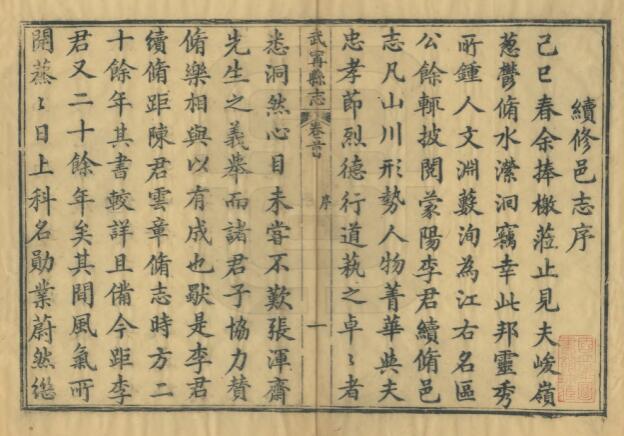 續修邑志序
己巳春余捧檄蒞止見夫峻嶺
蔥鬱脩水瀠洄竊幸此邦靈秀
所鍾人文淵藪洵為江右名區
公餘輒披閱蒙陽李君續脩邑
志凡山川形勢人物菁華與夫
忠孝節烈德行道蓺之卓〻者
武寧縣志 卷首 序 一
悉洞然心目未嘗不歎張渾齋
先生之義舉而諸君子協力贊
脩樂相與以有成也歟是李君
續脩距陳君雲章脩志時方二
十餘年其書較詳且備今距李
君又二十餘年矣其間風氣所
開蒸〻日上科名勛業蔚然繼